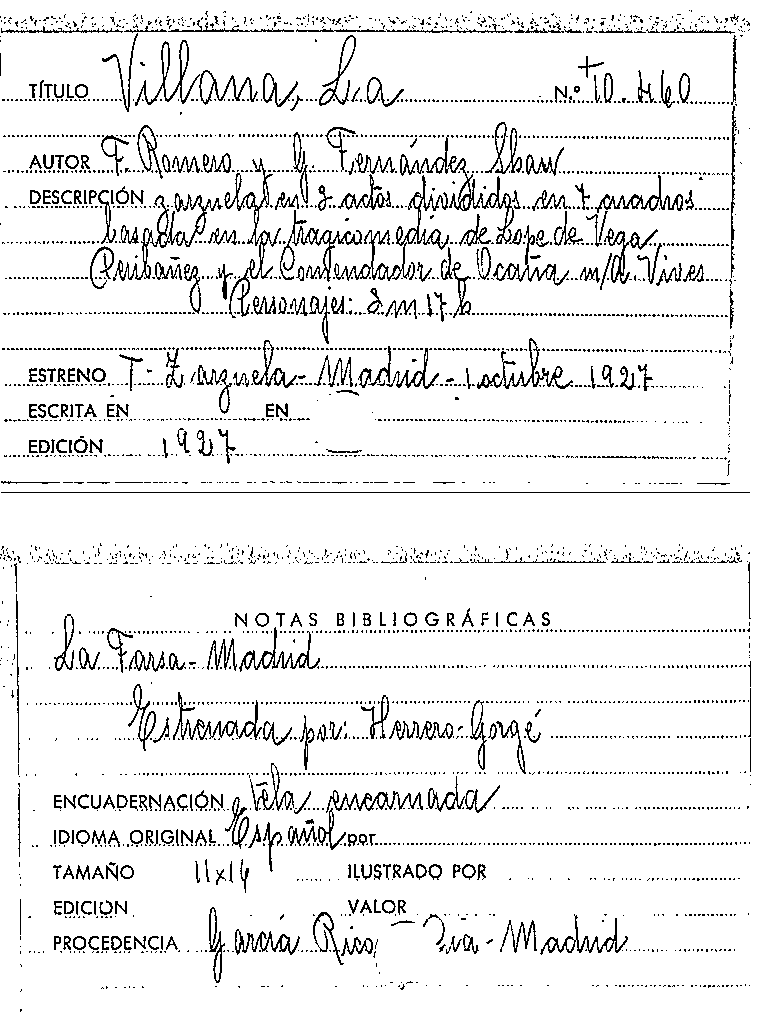 TÍTULO Villana, La N.º +10.460
AUTOR F. Romero y G. Fernández Shaw
DESCRIPCIÓN zarzuela en 3 actos divididos en 7 cuadros
basada en la tragicomedia de Lope de Vega
Peribáñez y el Comendador de Ocaña m/A. Vives
Personajes: 8 m 17 h
ESTRENO T. Zarzuela - Madrid - 1 octubre 1927
ESCRITA EN EN —
EDICIÓN 1927 —
NOTAS BIBLIOGRÁFICAS
La Farsa - Madrid
Estrenada por: Herrero-Gorgé
ENCUADERNACIÓN tela encarnada
IDIOMA ORIGINAL Español por
TAMAÑO 11x14 ILUSTRADO POR
EDICION VALOR
PROCEDENCIA García Rico - Madrid